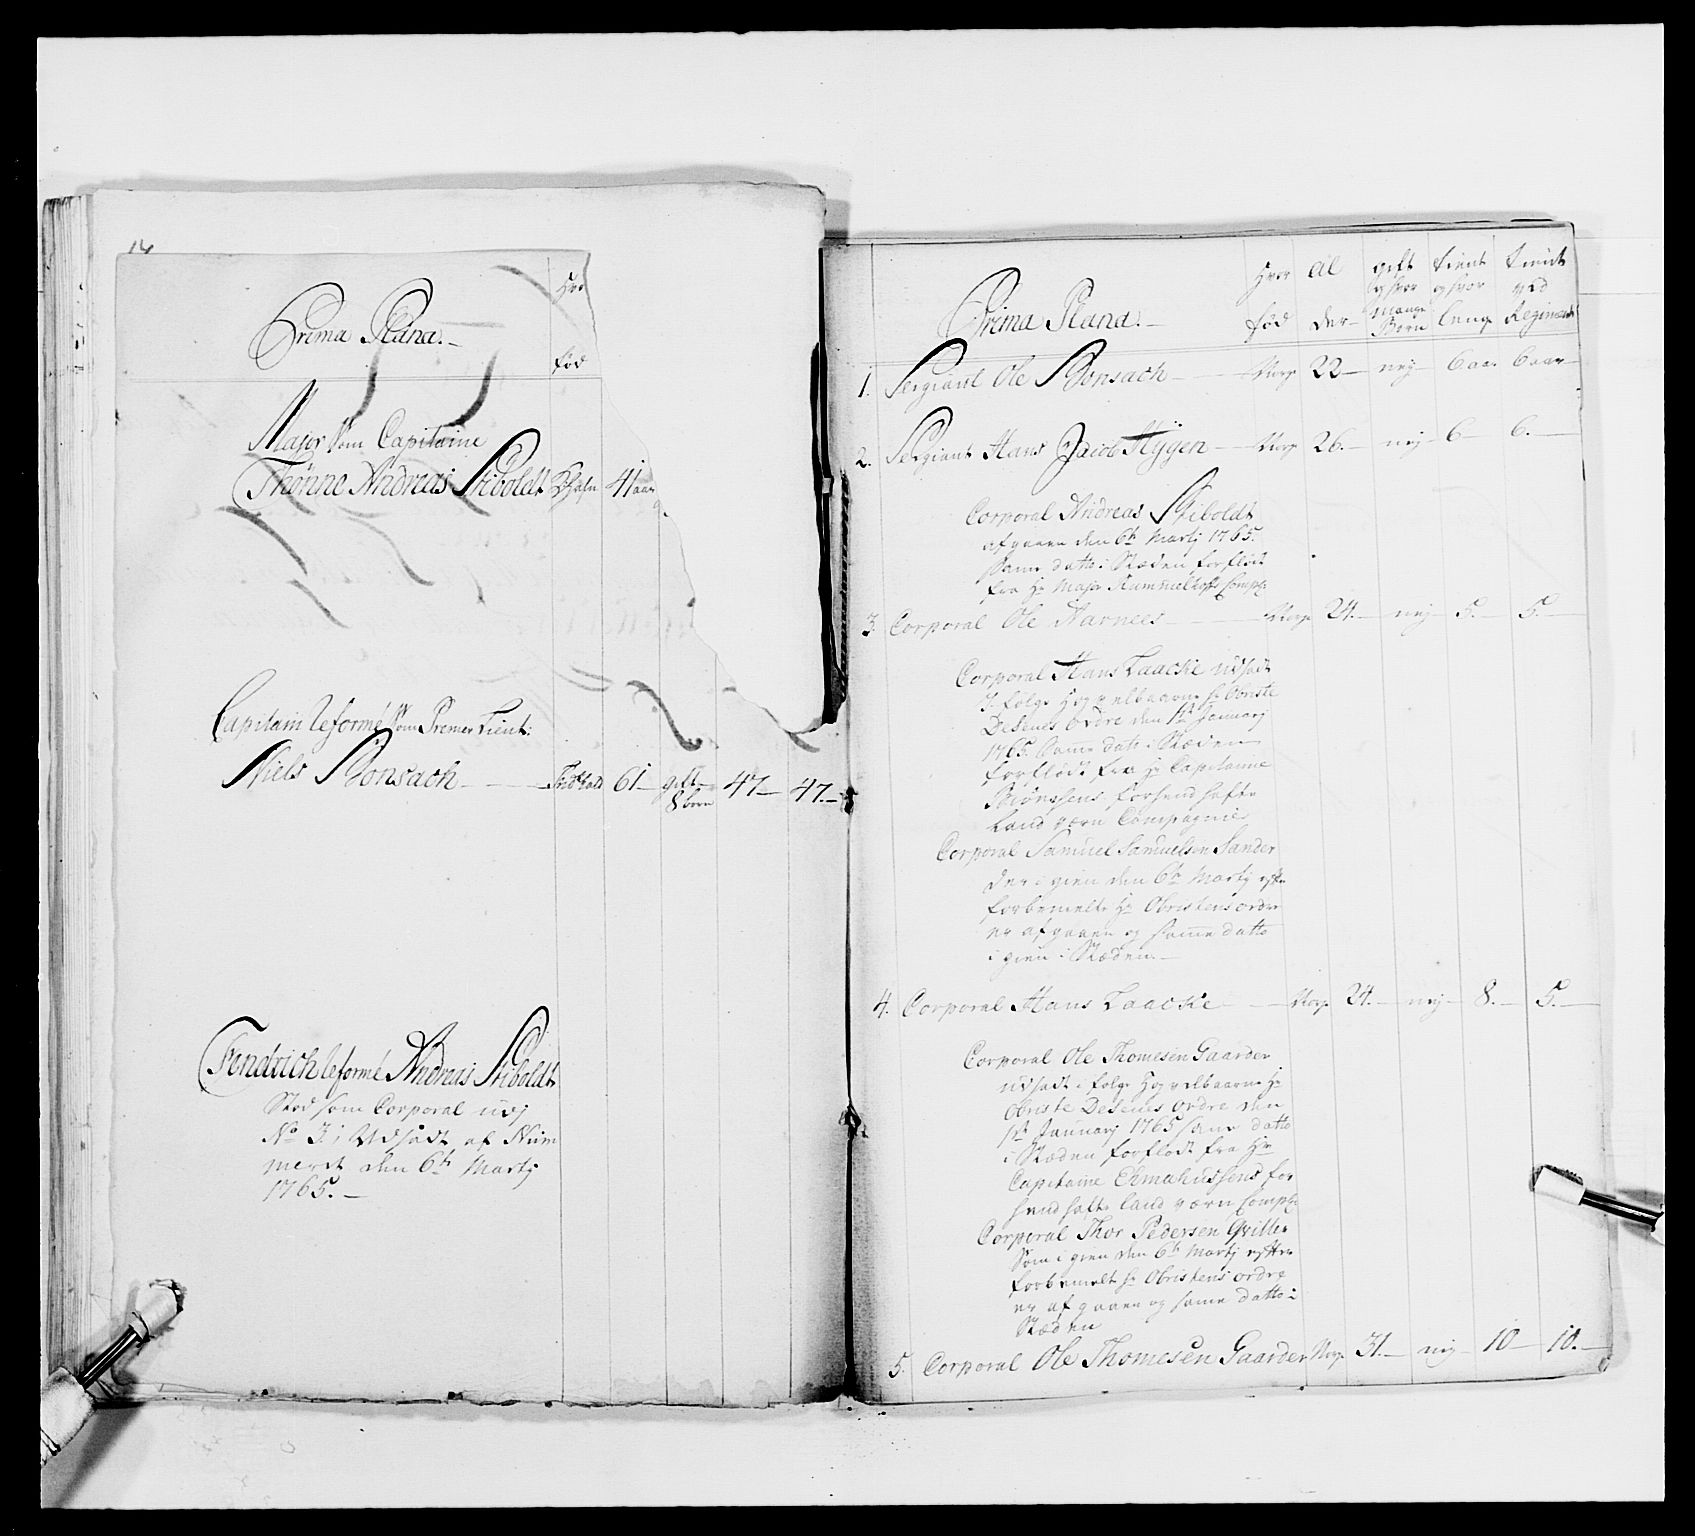 14
Prima Plana.
Hvor
fød
Major som Capitaine
Thønne Andreas Stiboldt 41 aar
Capitain Reformé som Premer Lieut:
Niels Bonsach 61 gift 47 47.
8 børn
Fendrich Reformé Andreas Stiboldt
Stod som Corporal udj
No 3 i Udsadt af Num
meret den 6te Martj
1765.
Prima Plana.
Hvor fød
Al der
gift og hvor mange Børn
tient og hvor leng
tient ved Regimentet
1. Sergiant Ole Bonsach Norg 22 nej 6 aar 6 aar
2. Sergiant Hans Jacob Hygen Norg 26. nej 6 6.
Corporal Andreas Stiboldt
afgaaen den 6te Martj 1765.
Same datto i Stæden forflødt
fra Hr Major Rummelhofs Comp:
3. Corporal Ole Narnees Norg 24. nej 5. 5.
Corporal Hans Laacke udsadt
J følge Høyvelbaarne Hr Obriste
DeSenes Ordre den 1te Januarj
1765. Same dato i Stæden
forflødt fra Hr Capitaine
Biønssens forhend hafte
Land værn Compagnie
Corporal Samuel Samuelsen Sander
der i gien den 6te Martj efter
forbemelte Hr Obristens ordre
er afgaaen og same datto
i gien i Stæden.
4. Corporal Hans Laacke Norg 24. nej 8. 5.
Corporal Ole Thomesen Gaarder
udsadt i følge Høyvelbaarne Hr
Obriste DeSenes ordre den
1te Januarj 1765 same datto
i Stæden forflødt fra Hr
Capitaine Ehmahussens for
hend hafte land værn Comp:
Corporal Thor Pedersen Qville
Som i gien den 6te Martj efter
forbemelt Hr Obristens ordre
er af gaaen og same datto i
Stæden
5. Corporal Ole Thomesen Gaarder Norg. 31. nej 10 10.